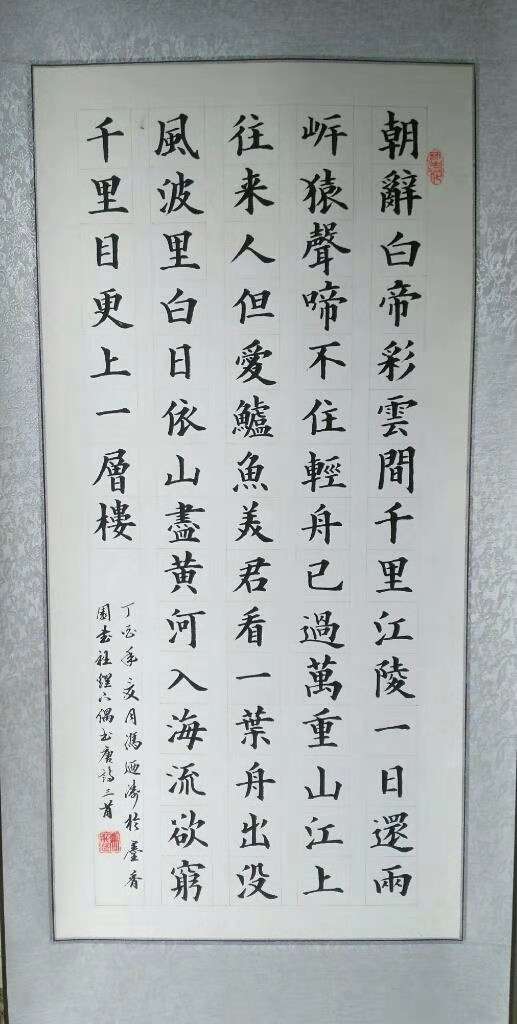 朝辭白帝彩雲間千里江陵一日還兩
岍猿聲啼不住輕舟已過萬重山江上
往来人但愛鱸魚美君看一葉舟出没
風波里白日依山盡黄河入海流欲窮
千里目更上一層樓
丁酉年月馮於墨香
園偶書唐詩三首